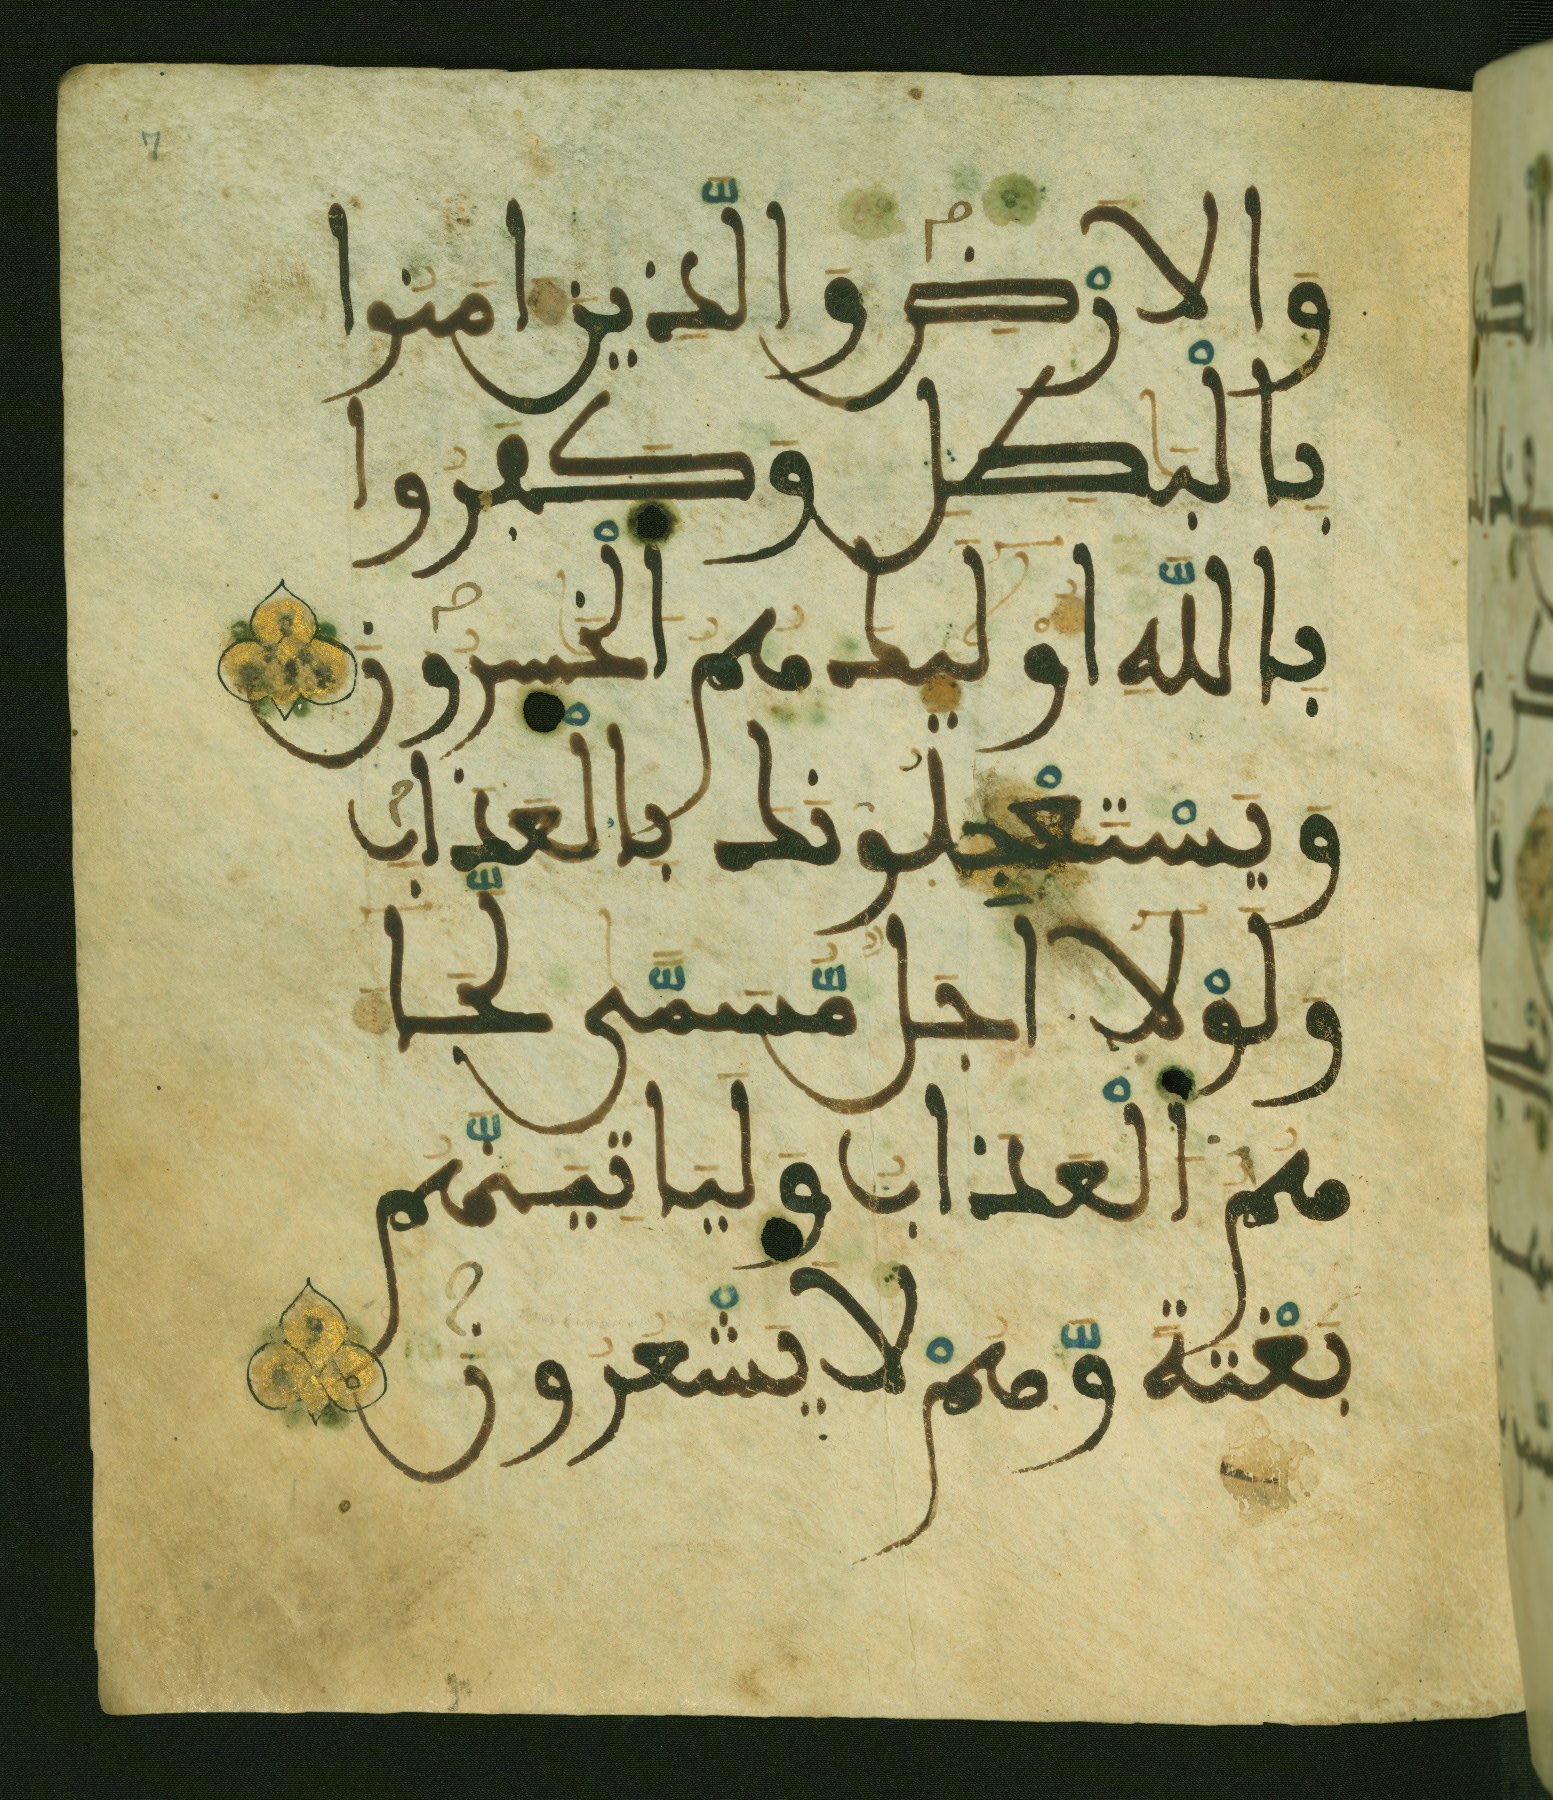 7
وَالَارْضِ وَالَّذِينَ ءَامَنُوا
بِالْبَٰطِلِ وَكَفَرُوا
بِاللَّهِ أُوْلَٰٓئِكَ هُمُ الْخَٰسِرُونَ
وَيَسْتَعْجِلُونَكَ بِالْعَذَابِ
وَلَوْلَآ أَجَلٌ مُّسَمًّى لَّجَآ
هُمُ الْعَذَابُ وَلَيَاتِيَنَّهُم
بَغْتَةً وَّهُمْ لَا يَشْعُرُونَ